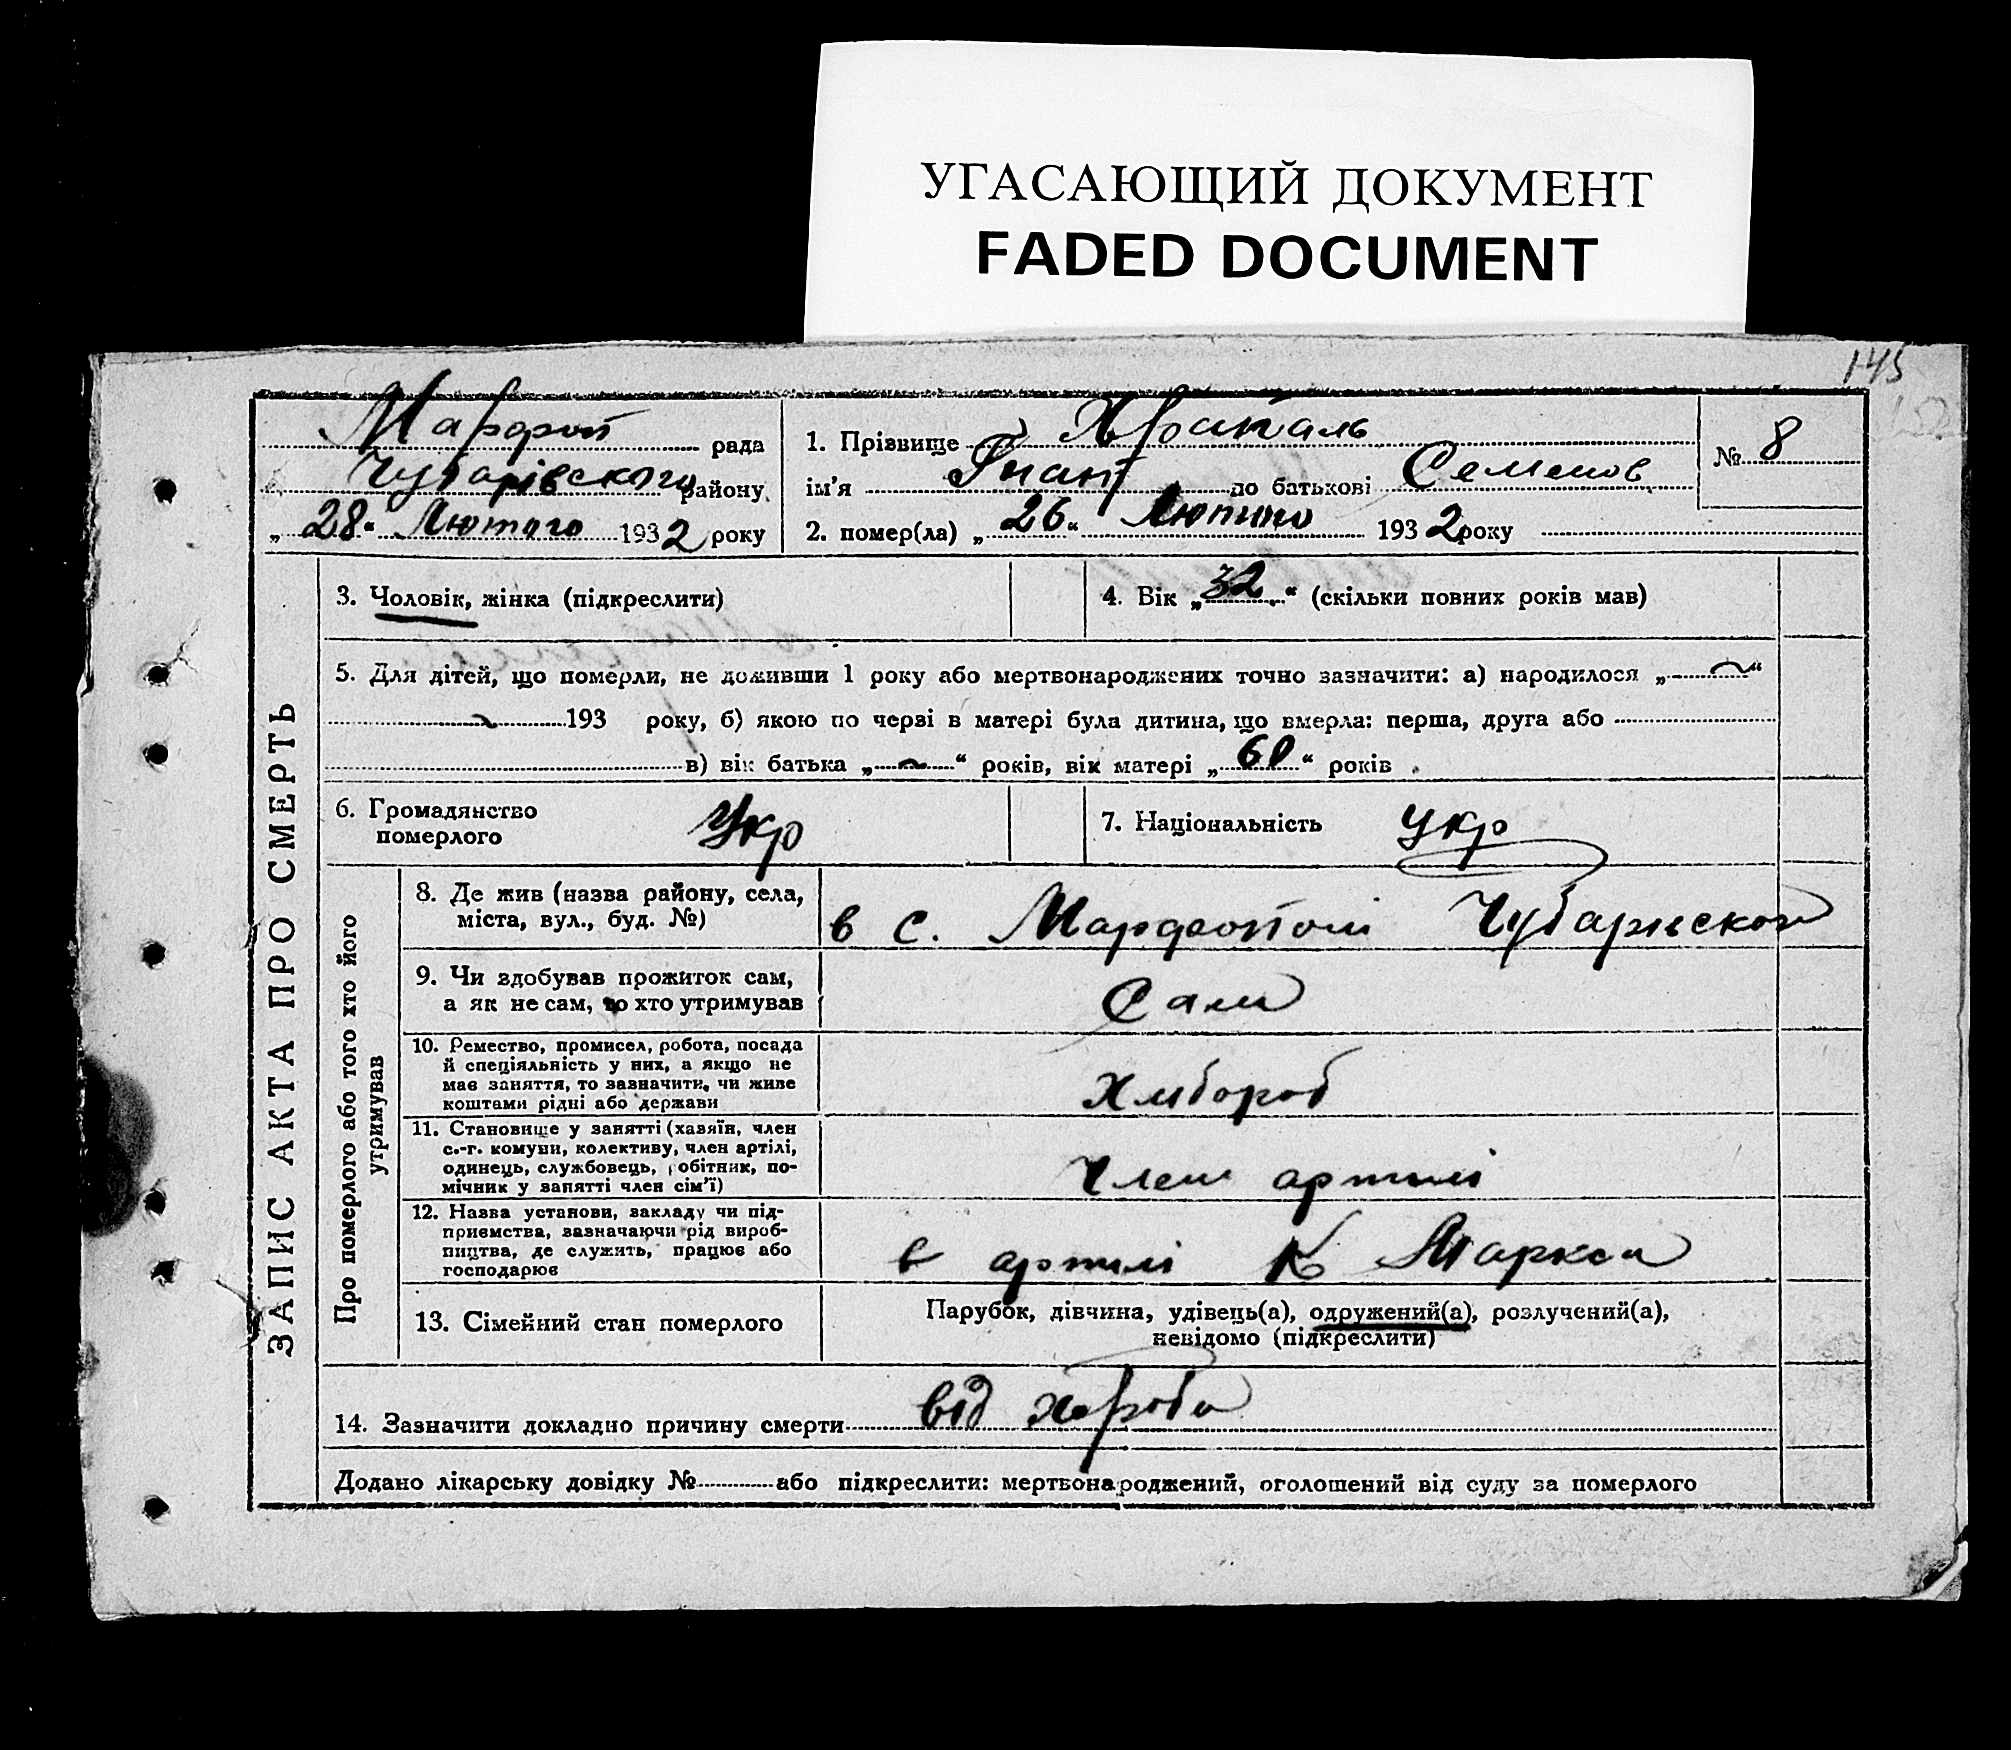 УГАСАЮЩИЙ ДОКУМЕНТ
FADED DOCUMENT
145
Марфоп рада
Чубарівского району
„28“ Лютого 1932 року
1. Прізвище Храпаль
ім'я Гнат по батькові Семенов
№ 8
2. помер(ла) „26“ Лютого 1932 року
ЗАПИС АКТА ПРО СМЕРТЬ
3. Чоловік, жінка (підкреслити)
4. Вік „32“ (скільки повних років мав)
5. Для дітей, що померли, не доживши 1 року або мертвонароджених точно зазначити: а) народилося „~“
~ 193 року, б) якою по черзі в матері була дитина, що вмерла: перша, друга або
в) вік батька „~“ років, вік матері „60“ років
6. Громадянство
померлого
Укр
7. Національність Укр
Про померлого або того хто його
утримував
8. Де жив (назва району, села,
міста, вул., буд. №)
в с. Марфополі Чубарівского
9. Чи здобував прожиток сам,
а як не сам, то хто утримував
Сам
10. Ремество, промисел, робота, посада
й спеціяльність у них, а якщо не
має заняття, то зазначити, чи живе
коштами рідні або держави
Хлібороб
11. Становище у занятті (хазяїн, член
с.-г. комуни, колективу, член артілі,
одинець, службовець, робітник, по-
мічник у занятті член сім'ї)
Член артилі
12. Назва установи, закладу чи під-
приємства, зазначаючи рід вироб-
ництва, де служить, працює або
господарює
в артилі К Маркса
13. Сімейний стан померлого
Парубок, дівчина, удівець(а), одружений(а), розлучений(а),
невідомо (підкреслити)
14. Зазначити докладно причину смерти від хороби
Додано лікарську довідку № або підкреслити: мертвонароджений, оголошений від суду за померлого